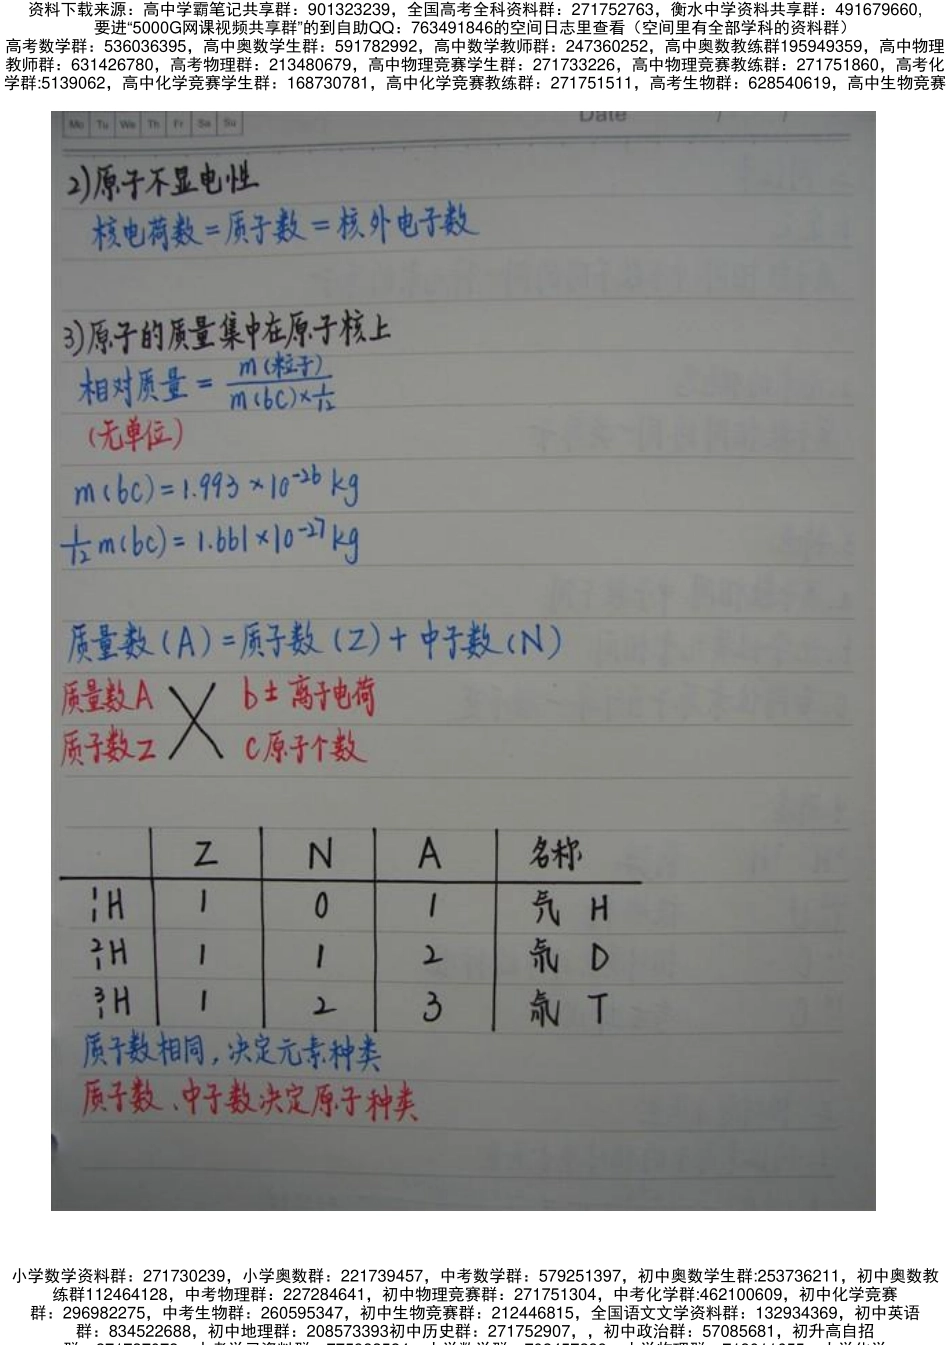 资料下载来源：高中学霸笔记共享群：901323239，全国高考全科资料群：271752763，衡水中学资料共享群：491679660,
要进“5000G网课视频共享群”的到自助QQ：763491846的空间日志里查看（空间里有全部学科的资料群）
高考数学群：536036395，高中奥数学生群：591782992，高中数学教师群：247360252，高中奥数教练群195949359，高中物理
教师群：631426780，高考物理群：213480679，高中物理竞赛学生群：271733226，高中物理竞赛教练群：271751860，高考化
学群:5139062，高中化学竞赛学生群：168730781，高中化学竞赛教练群：271751511，高考生物群：628540619，高中生物竞赛
Mo Tu We Th Fr Sa Su Date / /
2)原子不显电性
核电荷数=质子数=核外电子数
3)原子的质量集中在原子核上
相对质量 = m(粒子) / m(6C)×1/12
(无单位)
m(6C)=1.993×10⁻²⁶ kg
1/12 m(6C)=1.661×10⁻²⁷ kg
质量数(A)=质子数(Z)+中子数(N)
质量数A b± 离子电荷
质子数Z C原子个数
Z N A 名称
¹₁H 1 0 1 氕 H
²₁H 1 1 2 氘 D
³₁H 1 2 3 氚 T
质子数相同,决定元素种类
质子数、中子数决定原子种类
小学数学资料群：271730239，小学奥数群：221739457，中考数学群：579251397，初中奥数学生群:253736211，初中奥数教
练群112464128，中考物理群：227284641，初中物理竞赛群：271751304，中考化学群:462100609，初中化学竞赛
群：296982275，中考生物群：260595347，初中生物竞赛群：212446815，全国语文文学资料群：132934369，初中英语
群：834522688，初中地理群：208573393初中历史群：271752907，，初中政治群：57085681，初升高自招